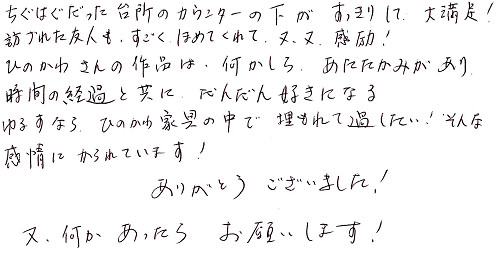 ちぐはぐだった台所のカウンターの下が すっきりして、大満足!
訪ずれた友人も、すごく、ほめてくれて、又、又、感励!
ひのかわさんの作品は、何かしら、あたたかみがあり、
時間の経過と共に、だんだん好きになる
ゆるすなら、ひのかわ家具の中で 埋もれて過したい!そんな
感情に かられています!
ありがとう ございました!
又、何か あったら お願いします!